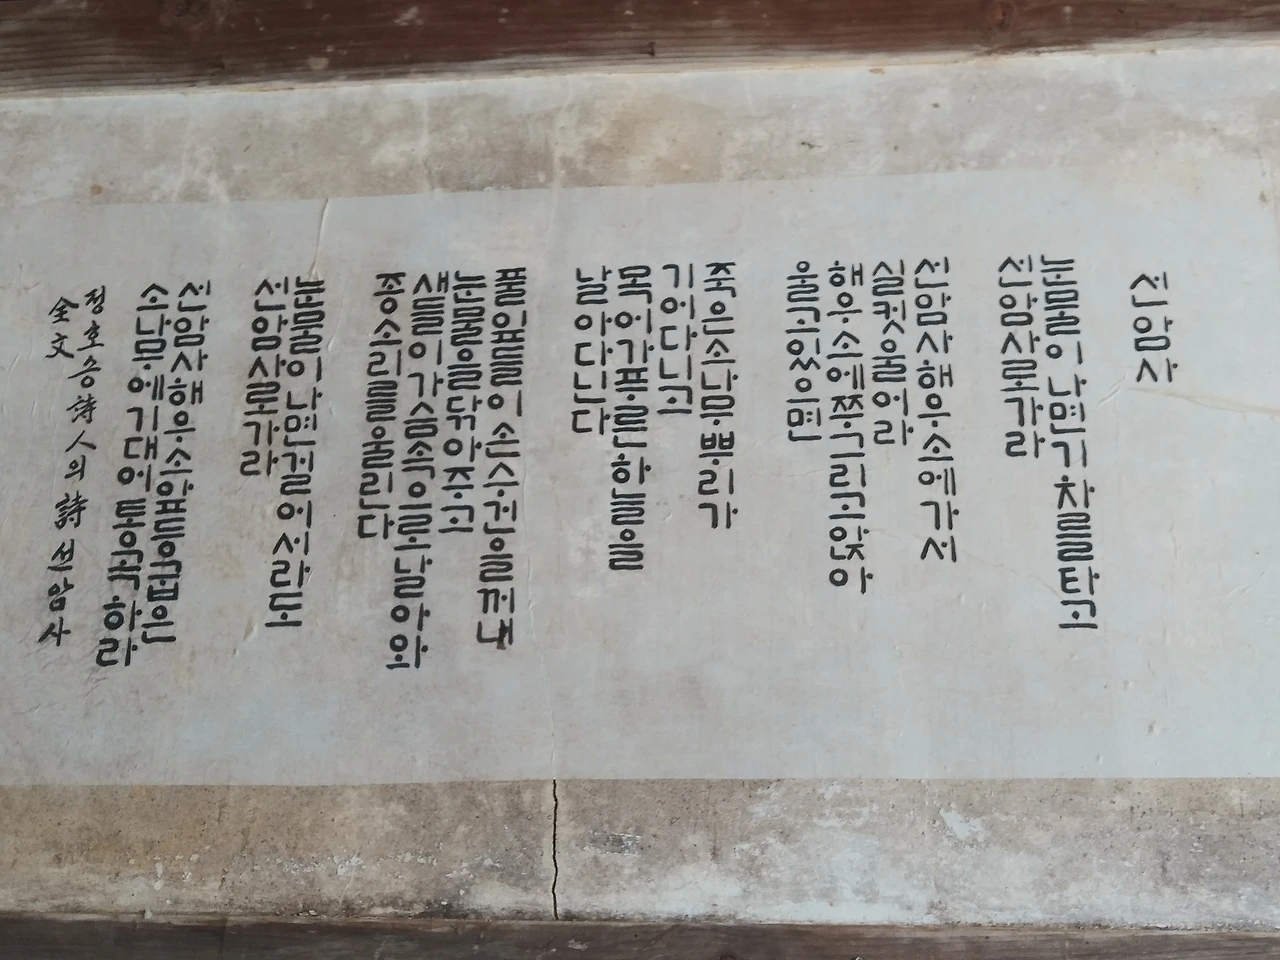 선암사
눈물이 나면 기차를 타고
선암사로 가라
선암사 해우소로 가서
실컷 울어라
해우소에 쭈그리고 앉아
울고 있으면
죽은 소나무 뿌리가
기어다니고
목어가 푸른 하늘을
날아다닌다
풀잎들이 손수건을 꺼내
눈물을 닦아주고
새들이 가슴속으로 날아와
종소리를 울린다
눈물이 나면 걸어서라도
선암사로 가라
선암사 해우소 앞 등 굽은
소나무에 기대어 통곡하라
정호승 詩人의 詩 선암사
全文